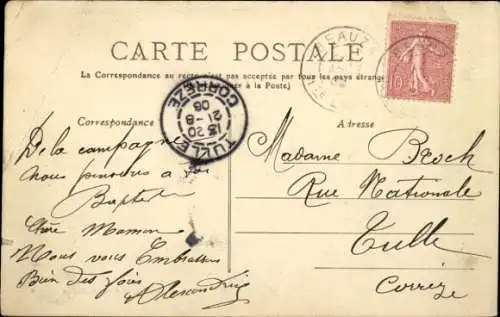 CARTE POSTALE
La Correspondance au recto n'est pas acceptée par tous les pays étrangers
à la Poste.)
Correspondance
Adresse
TULLE
13 20
21 - 8
06
CORRÈZE
10
De la campagne
nous pensons à
Baptiste
Chère Maman
Nous vous Embrassons
Bien des fois
Alexandrine
Madame Broch
Rue Nationale
Tulle
Corrèze